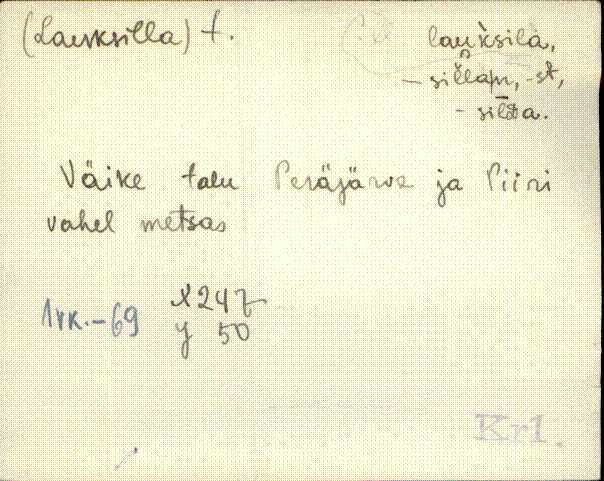 (Lauksilla) t.
lauksila,
- sillan, -st,
- silda.
Väike talu Peräjärve ja Piiri
vahel metsas
1vk.-69
X247
y 50
Krl.